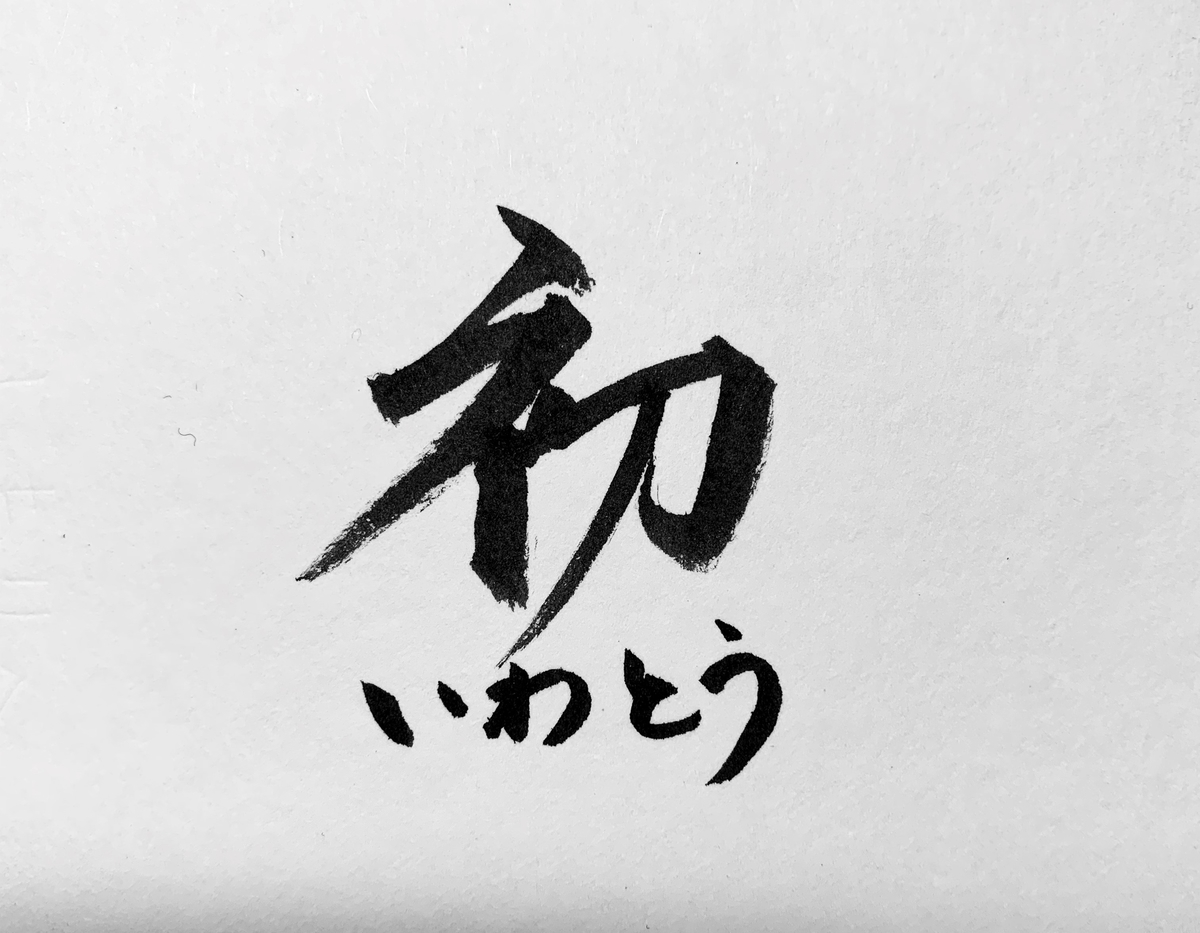 初
いわとう